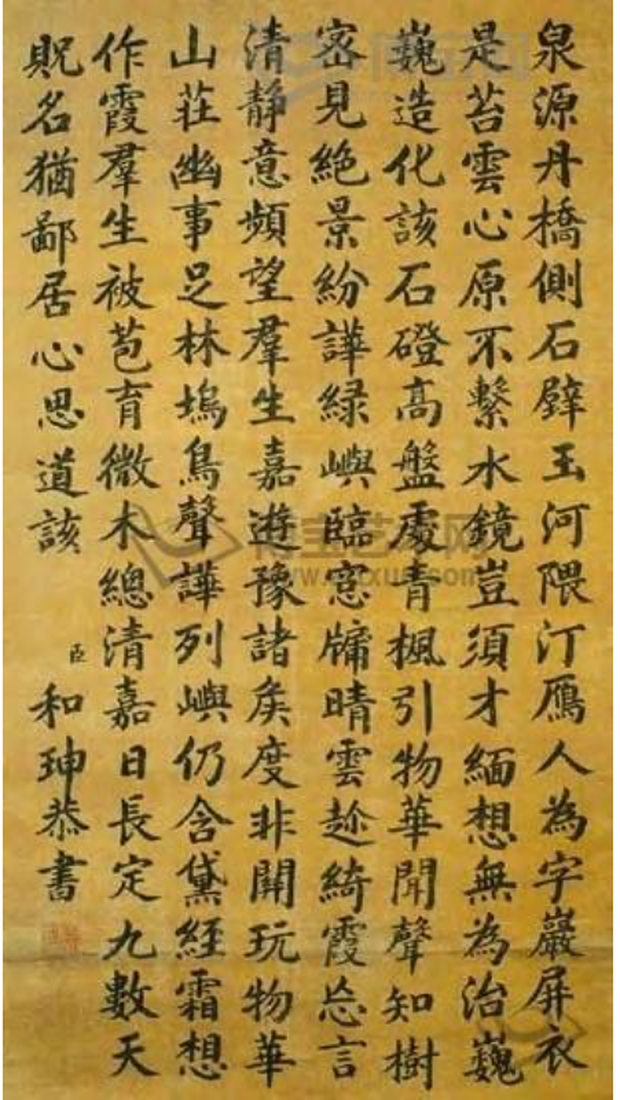 泉源丹橋側石壁玉河隈汀鴈人為字巖屏衣
是苔雲心原不繫水鏡豈須才緬想無為治巍
巍造化該石磴高盤處青楓引物華聞聲知樹
密見絕景紛譁緑嶼臨窓牖晴雲趁綺霞忘言
清靜意頻望羣生嘉遊豫諸矦度非關玩物華
山莊幽事足林塢鳥聲譁列嶼仍含黛經霜想
作霞羣生被苞育微木總清嘉日長定九數天
貺名猶鄙居心思道該
臣和珅恭書